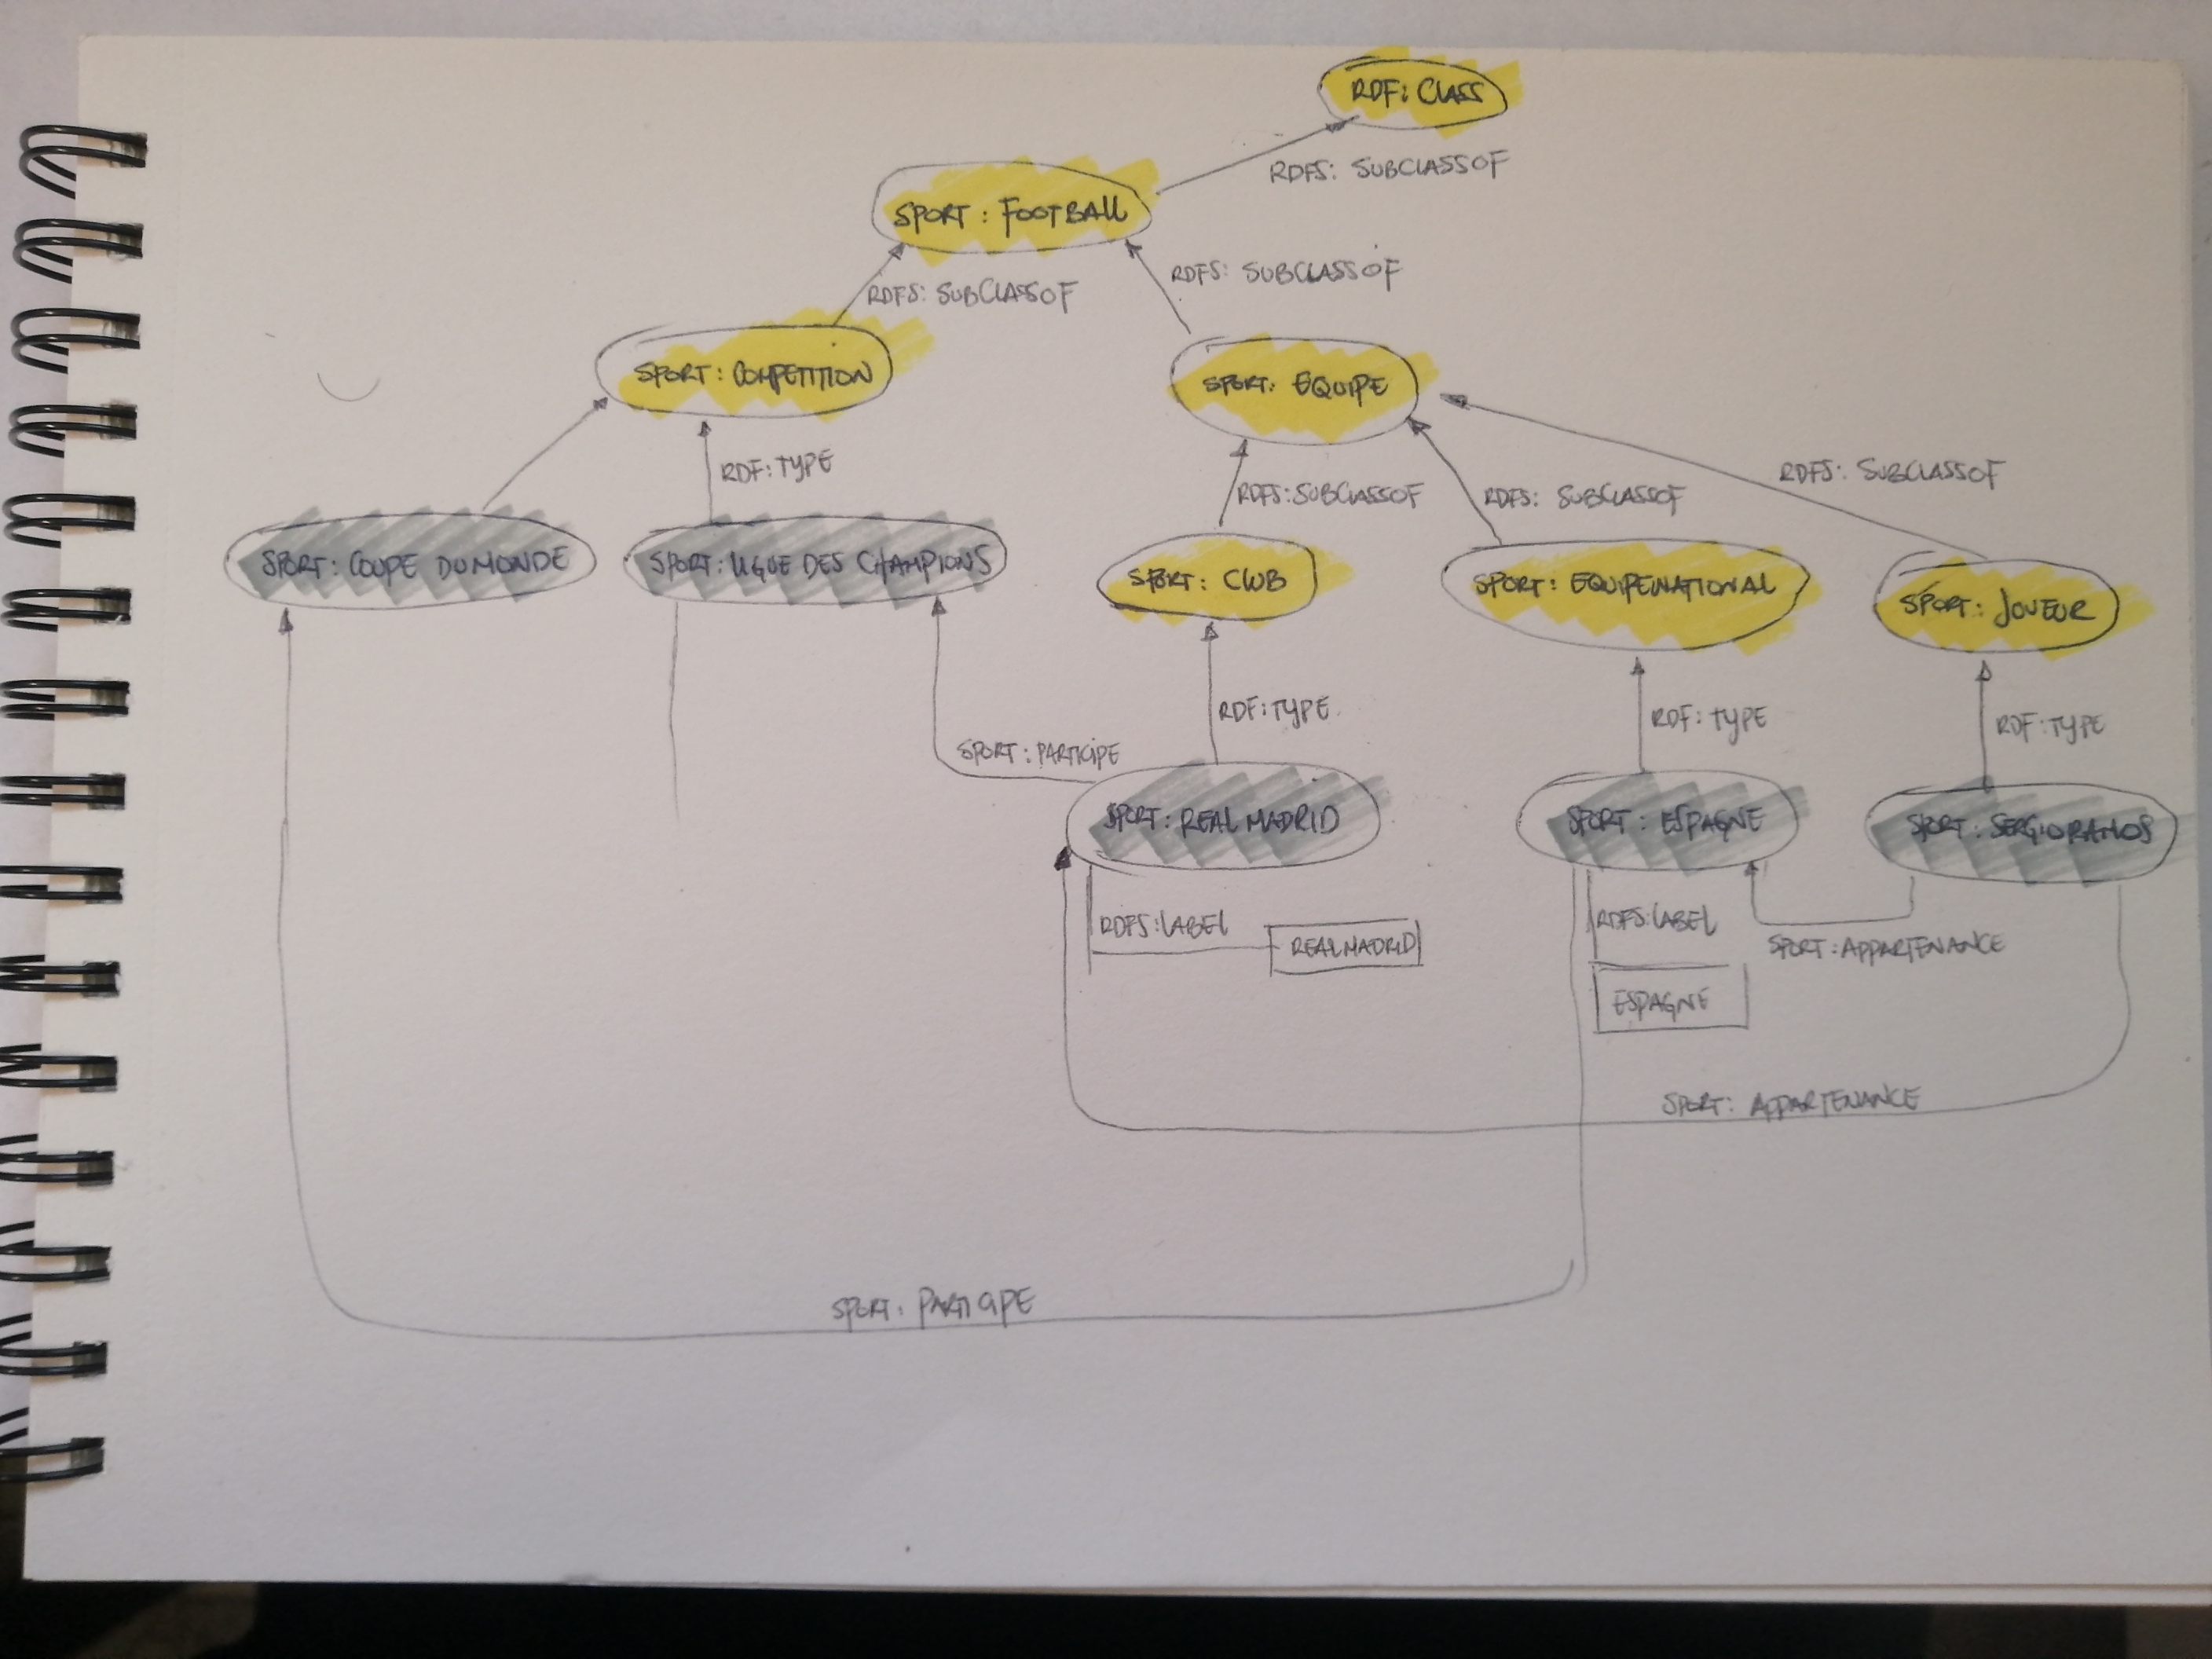 RDF: CLASS
RDFS: SUBCLASSOF
SPORT: FOOTBALL
RDFS: SUBCLASSOF
RDFS: SUBCLASSOF
SPORT: COMPETITION
SPORT: EQUIPE
RDF: TYPE
RDFS: SUBCLASSOF
RDFS: SUBCLASSOF
RDFS: SUBCLASSOF
SPORT: COUPE DU MONDE
SPORT: LIGUE DES CHAMPIONS
SPORT: CLUB
SPORT: EQUIPENATIONAL
SPORT: JOUEUR
RDF: TYPE
RDF: TYPE
RDF: TYPE
SPORT: PARTICIPE
SPORT: REAL MADRID
SPORT: ESPAGNE
SPORT: SERGIORAMOS
RDFS: LABEL
REALMADRID
RDFS: LABEL
SPORT: APPARTENANCE
ESPAGNE
SPORT: APPARTENANCE
SPORT: PARTICIPE